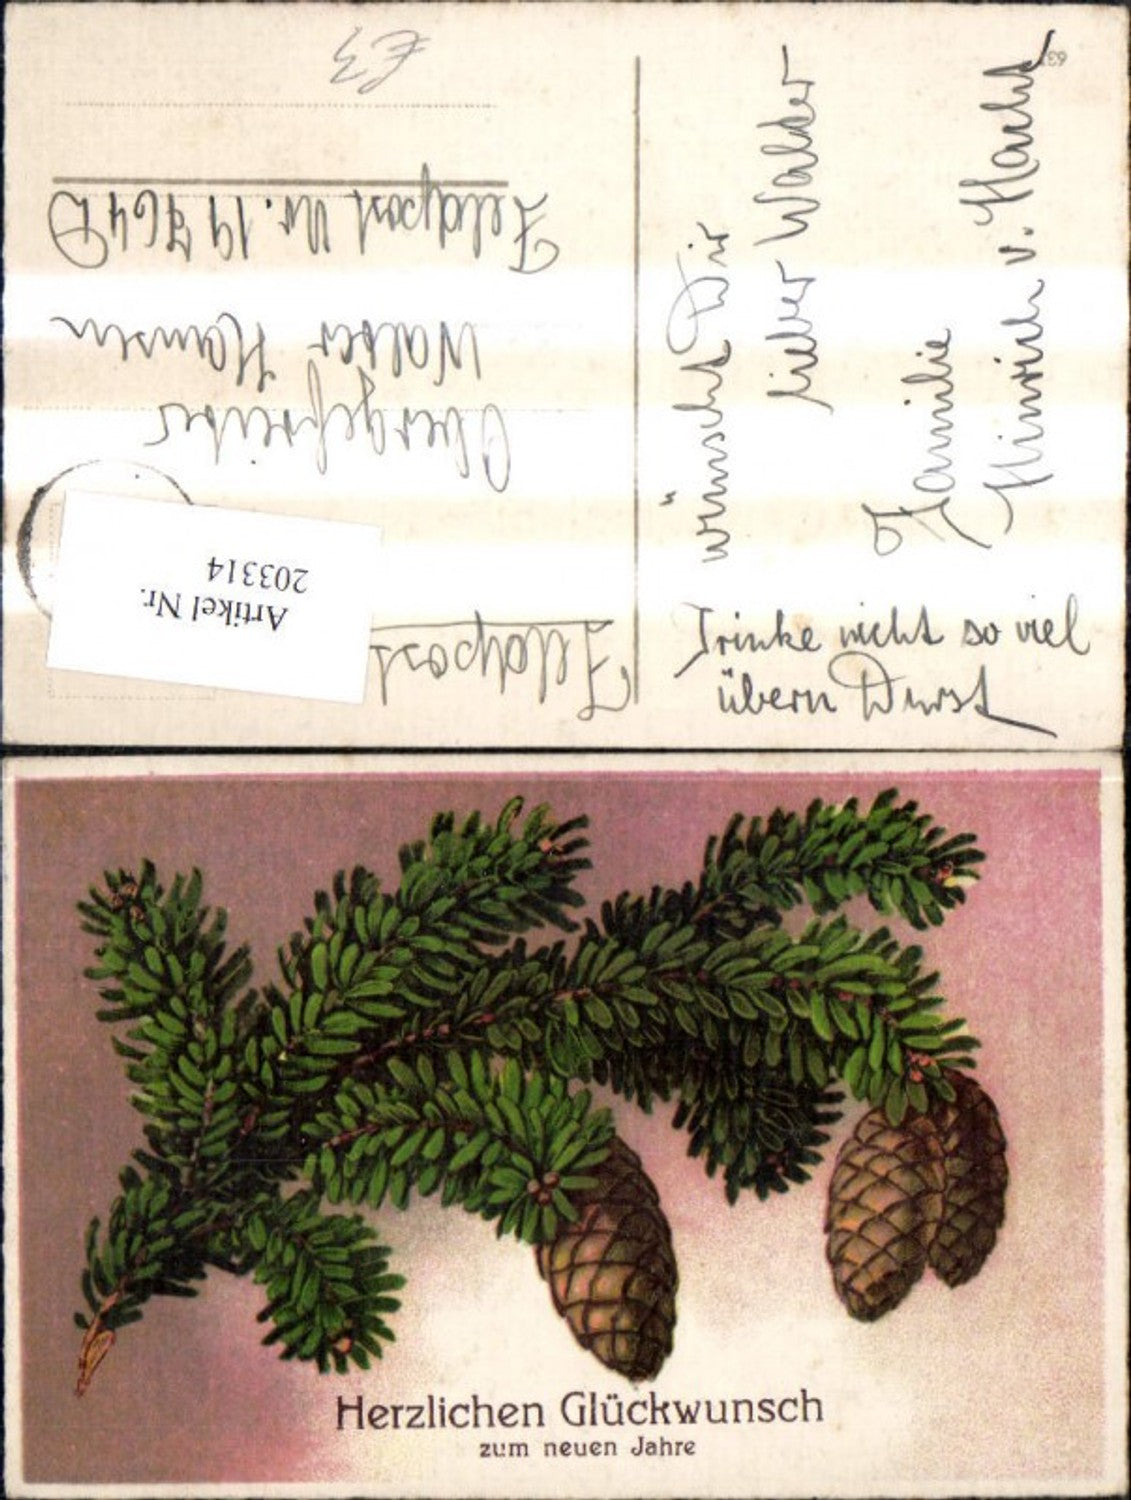 Feldpost
Obergefreiter
Walter Hansen
Feldpost Nr. 19 764 D
Artikel Nr.
203314
wünscht Dir
lieber Walter
Familie
Hinrich v. Hacht
Trinke nicht so viel
übern Durst
Herzlichen Glückwunsch
zum neuen Jahre